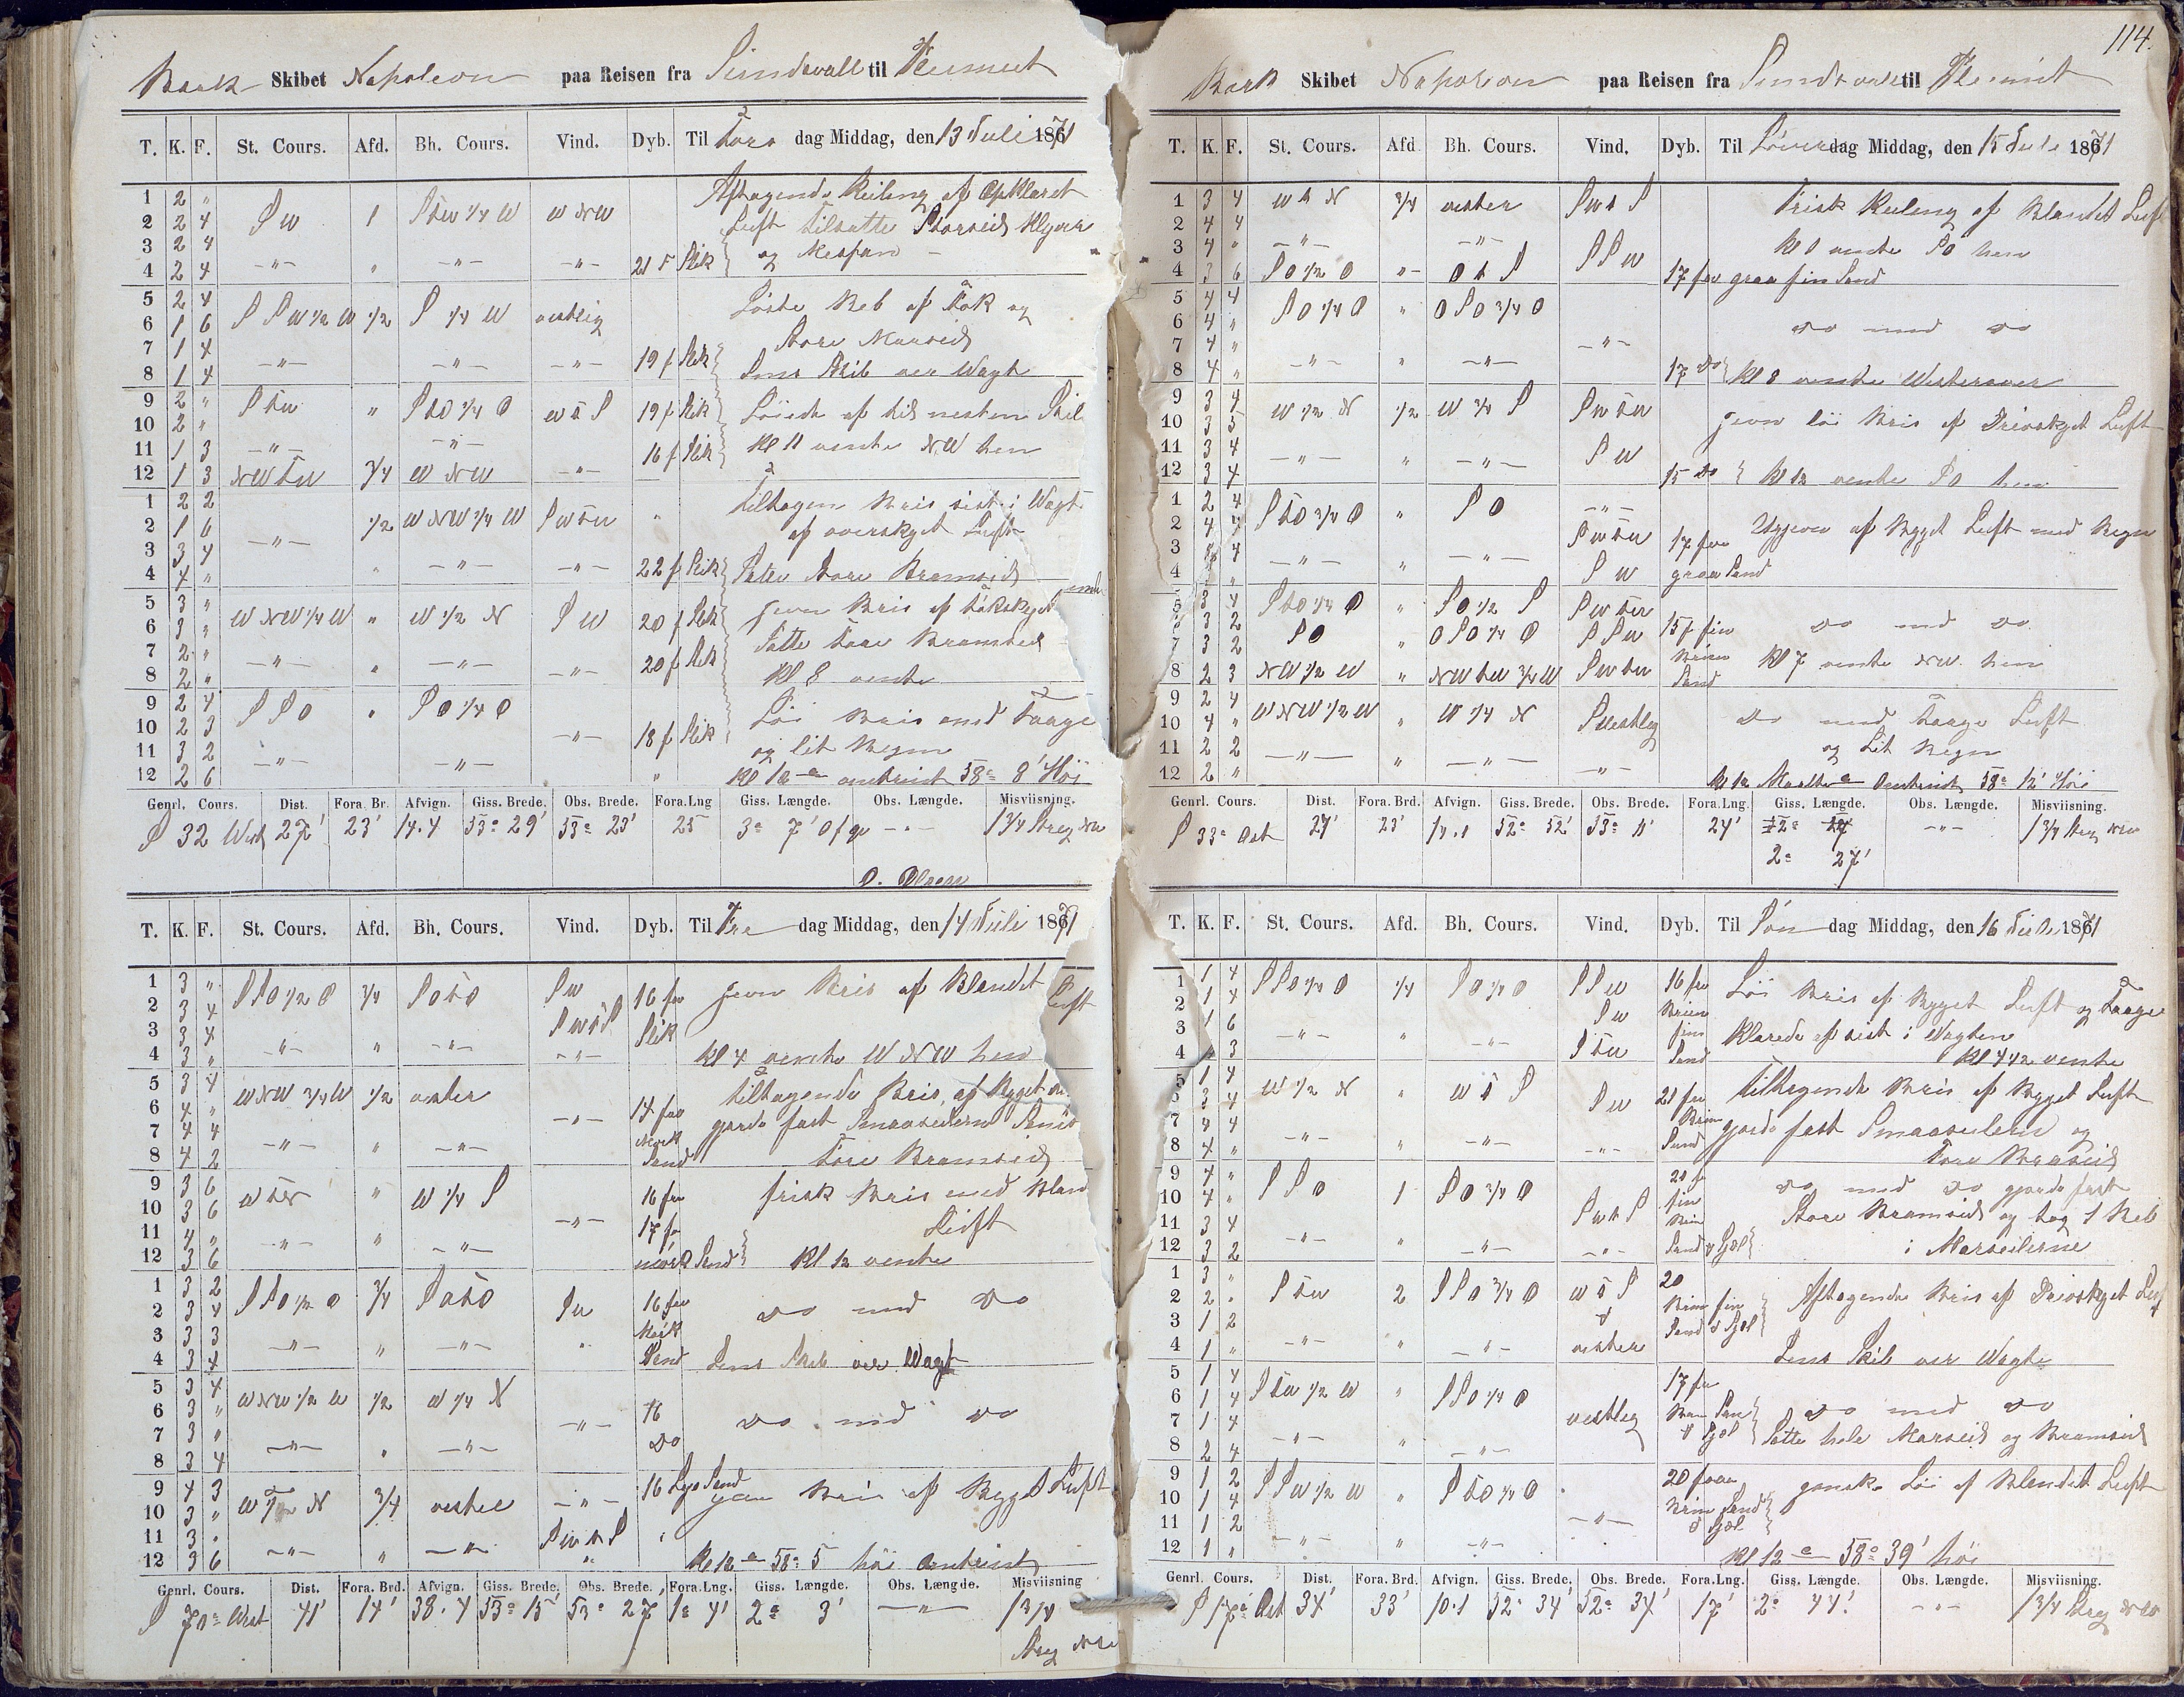 114.
Bark Skibet Napoleon paa Reisen fra Sundsvall til
T. K. F. St. Cours. Afd. Bh. Cours. Vind. Dyb. Til Tors dag Middag, den 13 Juli 1871
1 2 "
2 2 4 S W 1 Stw 1/4 W W N W
3 2 4
4 2 4 —"— " —"— —"— 21 f Slik
Aftagende Kuling af Opklaret
Luft Tilsatte Storseil Klyver
og Mesan —
5 2 4
6 1 6 S S W 1/2 W 1/2 S 1/4 W vestlig
7 1 4
8 1 4 —"— —"— —"— 19 f Slik
Løste Reb af Fok og
Store Marseil
Lens Skib ver Wagt
9 2 " Stw " Sto 1/4 O W t S 19 f Slik
10 2 "
11 1 3 —"— —"— 16 f Slik
12 1 3 NW t W 3/4 W N W —"—
Kl 11 vente NW hen
1 2 2
2 1 6 —"— 1/2 W N W 1/4 W S W t W "
3 3 4
4 4 " " —"— —"— 22 f Slik
Tiltagen Bris sist i Wagt
af overskyet Luft
Store Bramseil
5 3 "
6 3 " W N W 1/4 W " W 1/2 N S W 20 f Slik
7 2 "
8 2 " —"— " —"— —"— 20 f Slik
jevn Bris af
Satte Store Bramseil
Kl 8 vente
9 2 4
10 2 3 S S O " S O 1/4 O
11 3 2 —"— 18 f Slik
12 2 6 —"— —"— "
Løi Bris med Taage
og lit Regn
Kl 12 omtrint 58° 8' Høi
Genrl. Cours. Dist. Fora. Br. Afvign. Giss. Brede. Obs. Brede. Fora. Lng Giss. Længde. Obs. Længde. Misviisning.
S 32 West 27' 23' 14.4 53° 29' 53° 23' 25 3° 7' —"— 1 3/4 Streg NW
T. K. F. St. Cours. Afd. Bh. Cours. Vind. Dyb. Til Fre dag Middag, den 14 Juli 1871
1 3 "
2 3 4 Sto 1/2 O 3/4 S O t O S W 16 fv
3 3 4 S W t S Slik
4 3 " —"— " —"— —"—
jevn Bris af Blandet Luft
Kl 4 vente W N W hen
5 3 4
6 4 " W N W 3/4 W 1/2 vester —"— 14 fv
7 4 4 Mørk
8 4 2 —"— " —"— Sand
tiltagende Bris, af Bygget
gjorde fast Smaaseilene
Store Bramseil
9 3 6
10 3 6 W t N " W 1/4 S 16 fv
11 4 " —"— 17 fv
12 3 6 —"— " —"— mørk Sand
frisk Bris med Bland
Luft
Kl 12 vente
1 3 2
2 3 4 Sto 1/2 O 3/4 S O t O S W 16 fv
3 3 3 Mørk
4 3 4 —"— " —"— " Sand
Do med Do
Lens Skib ver Wagt
5 3 4
6 3 " W N W 1/2 W 1/2 W 1/4 N 16
7 3 " —"—
8 3 4 —"— " —"— Do
Do med Do
9 4 3
10 3 " W t N 3/4 vester —"— 16 Lys Sand
11 3 " S W t S "
12 3 6 —"— " —"— "
Bris af Bygget Luft
Kl 12 58° 5 høi Omtrint
Genrl. Cours. Dist. Fora. Brd. Afvign. Giss. Brede. Obs. Brede. Fora. Lng. Giss. Længde. Obs. Længde. Misviisning
S 70° West 41' 14' 38.4 53° 15' 53° 27' 1° 4' 2° 3' —"— 1 3/4
Streg NW
Bark Skibet Napoleon paa Reisen fra Sundsvall til
T. K. F. St. Cours. Afd Bh. Cours. Vind. Dyb. Til Løver dag Middag, den 15 Juli 1871
1 3 4 W t N 3/4 vester S W t S
2 4 4
3 4 " —"— —"— S S W
4 3 6 S O 1/2 O "— O t S 17 fv graa fin Sand
Frisk Kuling af Blandet Luft
Kl 1 vente SO hen
5 4 4 S O 1/4 O " O S O 3/4 O
6 4 "
7 4 " —"—
8 4 " —"— " —"— 17 Do
Do med Do
Kl 8 vente Westerover
9 3 4
10 3 5 W 1/2 N 1/2 W 3/4 S S W t W
11 3 4 S W
12 3 4 —"— " —"— 15 Do
jevn løi Bris af Drivskyet Luft
Kl 12 vente SO hen
1 2 4 Sto 3/4 O " S O —"—
2 4 4 S W t W 17 fv
3 4 —"— —"—
4 " " S W graa Sand
af Bygget Luft med Regn
5 3 4 Sto 1/4 O " S O 1/2 S S W t W
6 3 2 S O " O S O 1/4 O S S W 15 f fin
7 3 2 Brun
8 2 3 N W 1/2 W " N W t W 3/4 W S W t W Sand
Do med Do
Kl 7 vente NW hen
9 2 4
10 4 " W N W 1/2 W " W 1/4 N S vestleg
11 2 2
12 2 " —"— " —"— —"—
Do med Taage Luft
og Lit Regn
Kl 12 Omtrint 58° 12' Høi
Genrl. Cours. Dist. Fora. Brd. Afvign. Giss. Brede. Obs. Brede. Fora. Lng. Giss. Længde. Obs. Længde. Misviisning
S 33° Ost 27' 23' 14.1 52° 52' 53° 11' 24' —"— 1 3/4 Streg NW
2° 27'
T. K. F. St. Cours. Afd. Bh. Cours. Vind. Dyb. Til Søn dag Middag, den 16 Juli 1871
1 1 4 S S O 1/4 O 1/4 S O 1/2 O S S W 16 fv
2 1 4 S W Brun
3 1 6 fin
4 " 3 —"— " —"— S t W Sand
Løi Bris af Bygget Luft og Taage
Klarede af sist i Wagten
Kl 4 1/2 vente
5 1 4 W 1/2 N " W t S
6 3 4 S W 21 fv
7 4 4 Brun
8 4 " —"— " —"— —"— Sand
tiltagende Bris af Bygget Luft
gjorde fast Smaaseilene og
Store Bramseil
9 4 " S S O 1 S O 3/4 O 21 f
10 4 " fin
11 3 4 S W t S Brun
12 3 2 —"— " —"— —"— Sand & Sjæl
Do med Do gjorde fast
Store Bramseil og tog 1 Reb
i Marseilerne
1 3 " S t W 2 S S O 3/4 O W t S 20
2 2 " & Brun fin
3 1 2 Sand & Sjæl
4 1 " —"— " —"— vester
Aftagende Bris af Drivskyet Luft
Lens Skib ver Wagt
5 1 4
6 1 4 S t W 1/2 W " S S O 1/4 O 17 fv
7 1 4 vestleg
8 2 4 —"— " —"— & Sjæl
Do med Do
Satte hele Marseil og Bramseil
9 1 2 S S W 1/2 W " Sto 1/4 O 20 fv
10 1 4 Brun Sand
11 1 2 —"— & Sjæl
12 1 " —"— " —"—
ganske Løi af Blandet Luft
Kl 12 58° 39' høi
Genrl. Cours. Dist. Fora. Brd. Afvign. Giss. Brede. Obs. Brede. Fora. Lng. Giss. Længde. Obs. Længde. Misviisning.
S 17° Ost 34' 33' 10.1 52° 34' 52° 34' 17' 2° 44' —"— 1 3/4 Streg NW